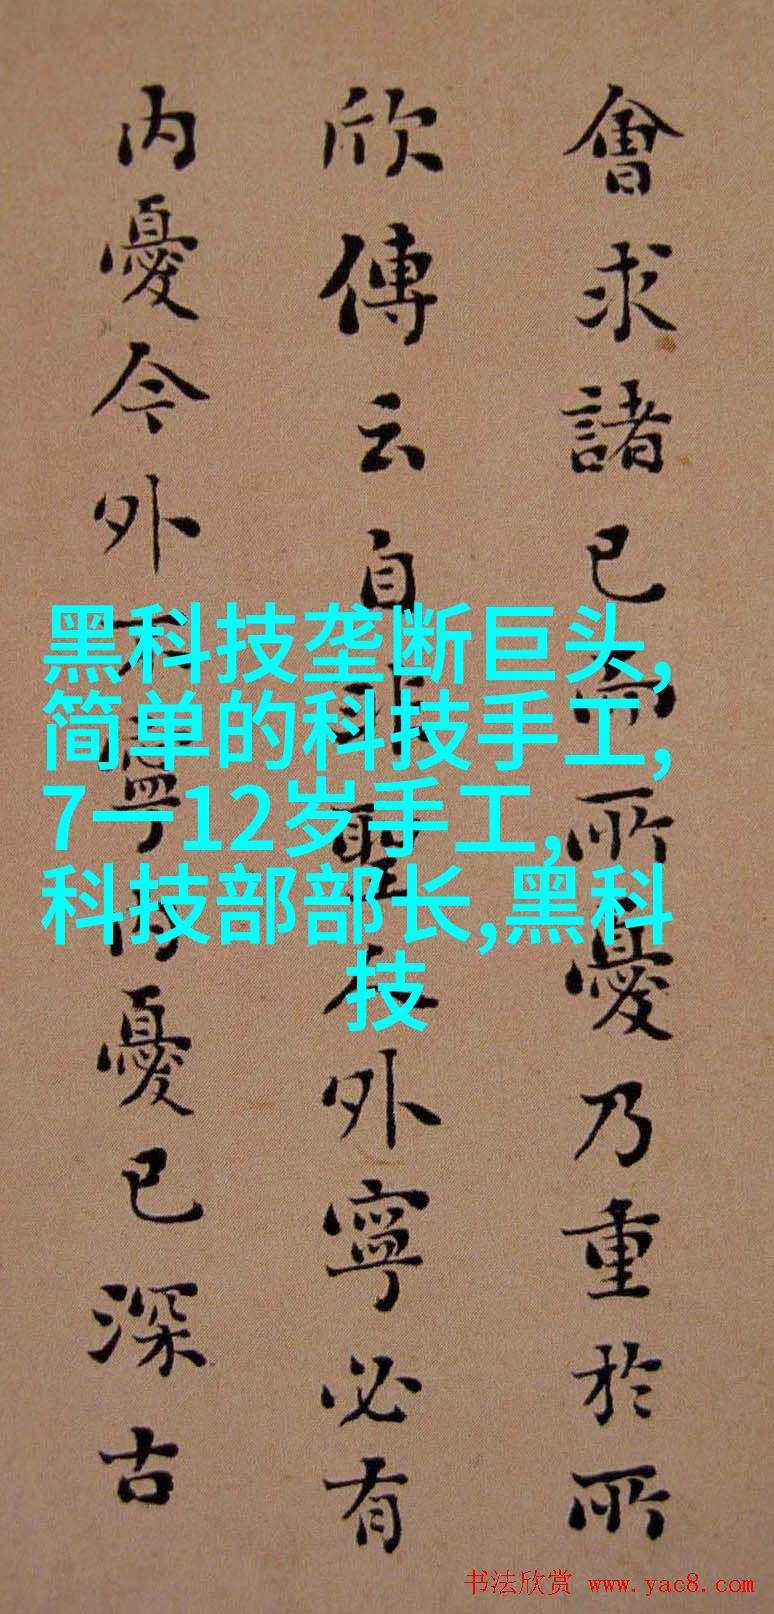 會求諸己而所憂乃重於所
欣傳云自非聖人外寧必有
内憂今外不寧内憂已深古
黑科技垄断巨头,
简单的科技手工,
7一12岁手工,
科技部部长,黑科
技
书法欣赏 www.yac8.com